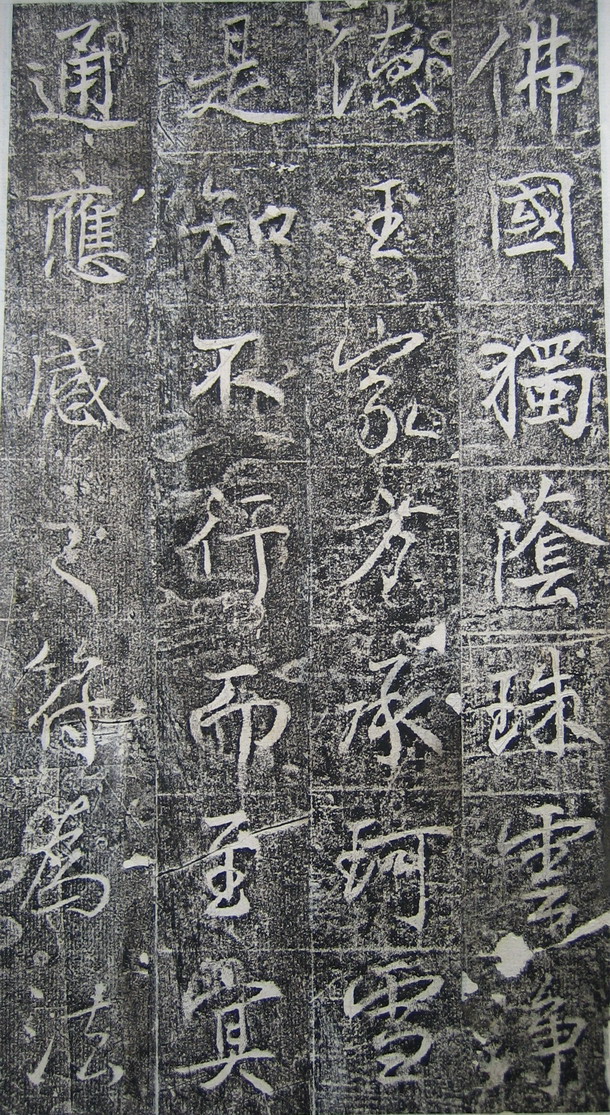 佛國獨蔭珠雲淨
德王家承珂雪
是知不行而至冥
通應感之符為法